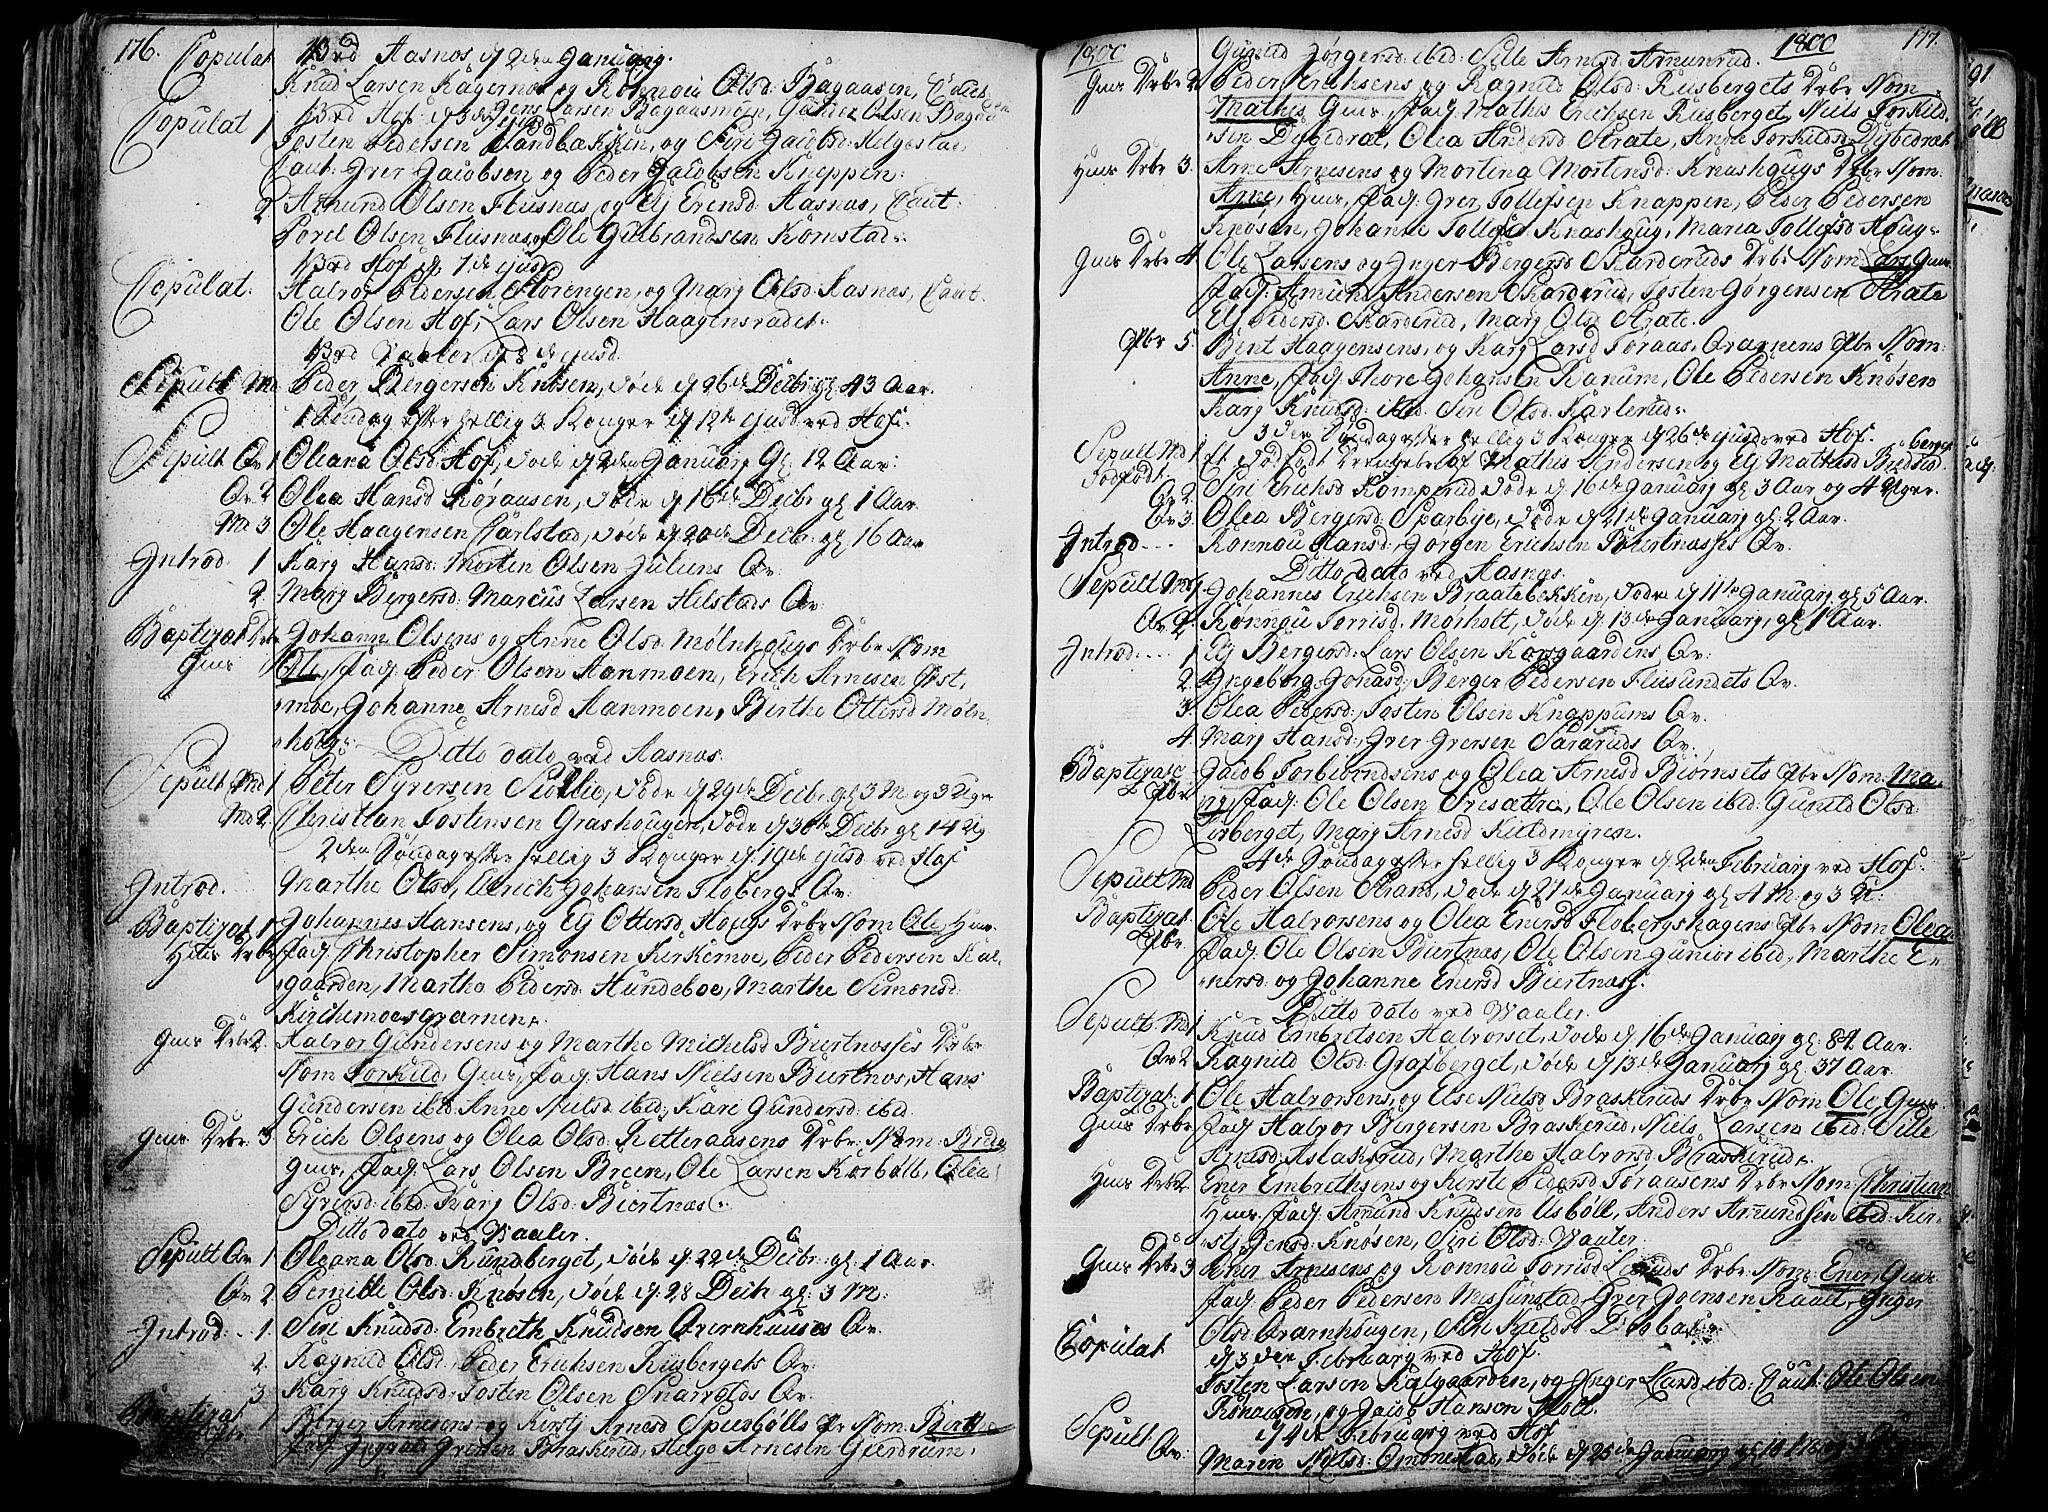 176.
Copulat Ved Aasnos, d 2den Januarj.
Knud Larsen Kagernos og Rønnou Olsd: Bagaasen, Caut:
Copulat 1 Ved Hof d 3de Jens Larsen Bagaasmoen, Gunder Olsen Bagaasen
Tosten Pedersen Sandbakken, og Siri Jacobsd: Helgestad,
Caut: Grer Jacobsen og Peder Jacobsen Kneppen:
2 Amund Olsen Flisnas og Elj Erensd: Aasnas, Caut:
Porel Olsen Flisnas, Ole Gulbrandsen Komstad
Ved Hof d 7de ejusd
Copulat. Halvor Pedersen Storengen, og Marj Olsd: Aasnas, Caut:
Ole Olsen Hof, Lars Olsen Haagensradet
Ved Vaaler d 8de ejusd.
Sepult Md Peder Bergersen Knøsen, døde d 26de Decbr gl 43 Aar.
1 Søndag efter hellig 3 Konger d 12te ejusd ved Hof.
Sepult Qv 1 Oleana Olsd: Hof, døde d 2den Januarj Gl: 12 Aar:
Qv 2 Olea Hansd Røraasen, døde d 16de Decbr gl 1 Aar
Md 3 Ole Haagensen Karlstad, døde d 20de Decbr: gl 16 Aar
Introd 1 Karj Hansd: Morten Olsen Juliens Qv:
2. Marj Bergersd: Marcus Larsen Helstads Qv:
Baptizat Drbr Johann Olsens og Anne Olsd: Mølnhougs Drbr Nom
Gmr 1 Ole, Fad: Peder Olsen Aanmoen, Erich Arnesen Øst,
moe, Johanne Arnesd Aanmoen, Birthe Ottersd Møln,
houg. Ditto dato ved Aasnas.
Sepult Md 1 Peter Syversen Sollie, døde d 29de Decbr gl 3 M og 3 Uger
Md 2. Christian Tostensen Grashougen, døde d 30te Decbr gl 14 Ug
2den Søndag efter hellig 3 Konger d: 19de ejusd ved Hof
Introd. Marthe Olsd, Ulrich Johansen Flobergs Qv.
Baptizat 1 Johannes Hansens, og Elj Ottersd Hofgs Drbr Nom Ole, Hmr.
Hmr Drbr Fad: Christopher Simonsen Kirkemoe, Peder Pedersen Kal,
gaarden, Marthe Pedersd: Hundeboe, Marthe Simonsd:
Kirchemoesqvarnen.
Gmr Drbr 2. Halvor Gundersens og Marthe Michelsd Biertnosses Drbr
Nom Torkild, Gmr, Fad: Hans Nielsen Biertnos, Hans
Gundersen ibid: Anne Nielsd ibid; Kari Gundersd: ibid
Gmr Drbr 3 Erich Olsens og Olea Olsd: Retteraasens Drbr: Nom:
Gmr, Fad: Lars Olsen Breen, Ole Larsen Korbøll, Olea
Syversd: ibid: Karj Olsd: Biertnas:
Ditto dato ved Vaaler.
Sepult Qv 1 Oleana Olsd. Rundberget, døde d. 22de Decbr: gl 1 Aar.
Qv 2 Pernille Olsd: Knøsen, døde d 28 Decbr gl: 3 M:
Introd: 1. Siri Knudsd: Embreth Knudsen Overnhuuses Qv.
2. Ragnild Olsd, Peder Erichsen Riisbergets Qv:
3 Karj Knudsd: Tosten Olsen Snarvolds Qv.
Baptizat 1 Berger Arnesens og Kirstj Arnesd Speesbølls Pbr Nom: Birthe
Fad: Ingvald Gretten Braskerud, Helge Arnesen Gierdrum,
1800 Gunild Jørgensd: ibid: Sille Arnesd: Arnunrud. 1800 177.
Gmr Drbr 2. Peder Erichsens og Ragnild Olsd: Riisbergets Drbr Nom
Mathis Gmr, Fad: Mathis Erichsen Riisberget, Niels Torkild
sen Dybedral, Olea Andersd Strate, Anne Torkildsd Dybedral
Hmr Drbr 3. Arne Arnesens og Mortina Mortensd: Knashougs Drbr Nom:
Arne, Hmr, Fad: Grer Tollefsen Knappen, Peder Pedersen
Knøsen, Johanne Tollefsd Knashoug, Maria Tollefsd Houg
Gmr Drbr 4. Ole Larsens og Inger Bergersd Skarderuds Drbr Nom Lars Gmr
Fad: Amund Andersen Skarderud, Tosten Jørgensen Strate
Elj Pedersd: Skarderud, Marj Olsd Strate.
Pbr 5. Bent Haagensens, og Karj Larsd Toraas Qvarnens Pbr Nom:
Anne, Fad: Thore Johansen Ranum, Ole Pedersen Knøsen
Karj Knudsd: ibid: Siri Olsd: Karlerud
3die Søndag efter hellig 3 Konger d 26de ejusd ved Hof.
Sepult Md 1 Et dødfødt Drengebr af Mathis Andersen og Elj Mathisd Bredsid berget
dødfødt
Qv 2. Siri Erichsd Komperud døde d. 16de Januarj gl 3 Aar og 4 Uger.
Qv 3. Olea Bergersd: Sparbye, døde d 21de Januarj gl: 2 Aar.
Introd. Rønnou Hansd: Jørgen Erichsen Biertnasses Qv.
Ditto dato ved Aasnas.
Sepult Md 1. Johannes Erichsen Braatebekken, døde d 11te Januarj gl 5 Aar.
Qv 2. Rønnou Torrisd. Mørholt, døde d. 13de Januarj, gl 1 Aar.
Introd: 1. Elj Bergersd: Lars Olsen Korsgaardens Qv:
2. Ingeborg Jonasd; Berger Pedersen Flisundets Qv.
3. Olea Pedersd: Tosten Olsen Knappums Qv.
4. Marj Hansd: Grer Grersen Sararuds Qv:
Baptizat Jacob Torbiørndsens og Olea Arnesd Biørnsets Pbr Nom: Ma,
Pbr. rj, Fad: Ole Olsen Presattra, Ole Olsen ibid: Gunild Olsd:
Lerberget, Marj Arnesd Kieldmyren.
4de Søndag efter hellig 3 Konger d 2den Februarj ved Hof:
Sepult Md Peder Olsen Strand, døde d. 27de Januarj gl 4 M: og 3 U:
Baptizat Ole Halvorsens og Olea Enersd Flobergshagens Pbr Nom Olea
Pbr. Fad: Ole Olsen Biertnas, Ole Olsen Junior ibid, Marthe E
nersd og Johanne Enersd Biertnass.
Ditto dato ved Vaaler.
Sepult. Md 1 Knud Embretsen Halvorset, døde d. 16de Januarj gl. 84 Aar.
Qv 2 Ragnild Olsd: Grafberget, døde d 13de Januarj gl: 37 Aar.
Baptizat. 1 Ole Halvorsens, og Else Nielsd Braskeruds Drbr Nom Ole, Gmr
Gmr Drbr. Fad: Halvor Bergersen Braskerud, Niels Larsen ibid: Sille
Arnesd: Aslaksrud, Marthe Halvorsd Braskerud.
Hmr Drbr 2 Ener Embrethsens og Kirste Pedersd Toraasens Drbr Nom: Christian
Hmr. Fad: Amund Knudsen Usbøll, Anders Amundsen ibid: Kir
stj Jensd: Knøsen, Siri Olsd: Vaaler.
Gmr Drbr 3 Ener Arnesens og Rønnou Torrisd Lunds Drbr. Nom: Ener, Gmr
Fad: Peder Pedersen Nissunstad, Grer Joensen Raalt, Inger
Olsd Qvarnhougen, Siri Kieldsd
Copulat d 3die Februarj ved Hof.
Tosten Larsen Kalgaarden, og Inger Larsd ibid: Caut: Ole Olsen
Rønaasen, og Jacob Hansen Moll.
Sepult d 4de Februarj ved Hof
Qv: Maren Nielsd: Omonestad, døde d 25de Januarj gl